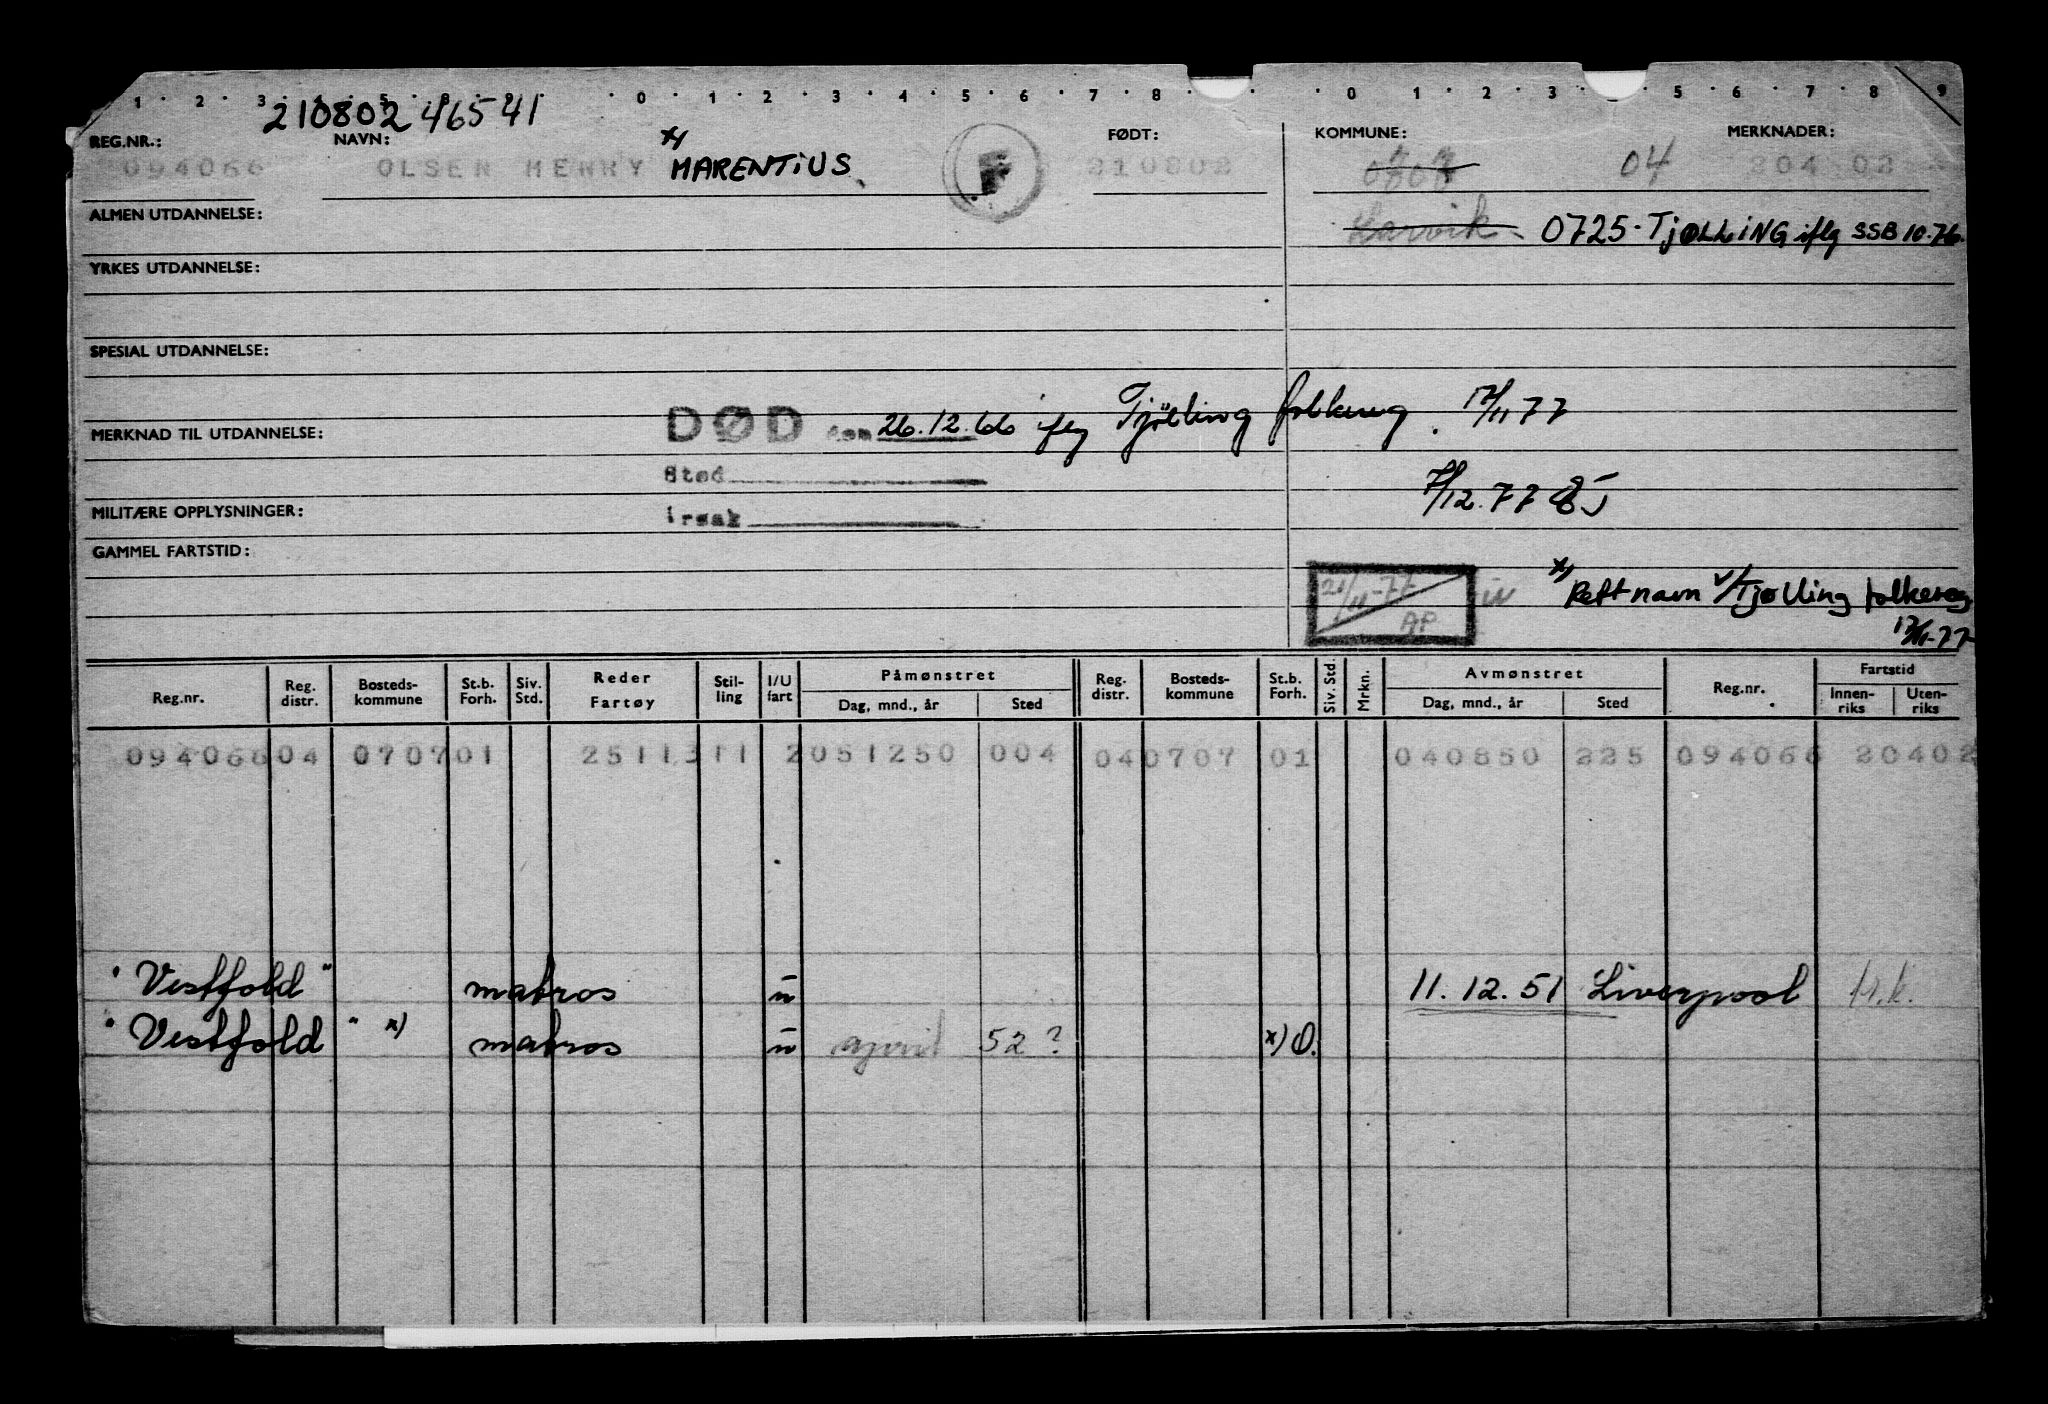 1 · 2 · 3 · 5 · 0 · 1 · 2 · 3 · 4 · 5 · 6 · 7 · 8 · 0 · 1 · 2 · 3 · 5 · 6 · 7 · 8 · 9
210802 46541
REG.NR.: NAVN: x) FØDT: KOMMUNE: MERKNADER:
094066 OLSEN HENRY MARENTIUS F 210802 0707 04 204 02
ALMEN UTDANNELSE: Larvik 0725-TJØLLING iflg SSB 10-76.
YRKES UTDANNELSE:
SPESIAL UTDANNELSE:
MERKNAD TIL UTDANNELSE: DØD den 26.12.66 iflg Tjölling folkereg. 17/11 77
Sted
7/12.77
MILITÆRE OPPLYSNINGER: Årsak
GAMMEL FARTSTID:
21/11-77 AP
x) Rett navn v/Tjølling folkereg
17/11-77
Reg.nr. Reg. distr. Bosteds-kommune St.b. Forh. Siv. Std. Reder Fartøy Stil-ling I/U fart Påmønstret Dag, mnd., år Sted Reg. distr. Bosteds-kommune St.b. Forh. Siv. Std. Mrkn. Avmønstret Dag, mnd., år Sted Reg.nr. Fartstid Innen-riks Uten-riks
094066 04 0707 01 2511311 2 051250 004 04 0707 01 040850 225 094066 20402
"Vestfold" matros u 11.12.51 Liverpool tr.k.
"Vestfold" x) matros u april 52? x) O.